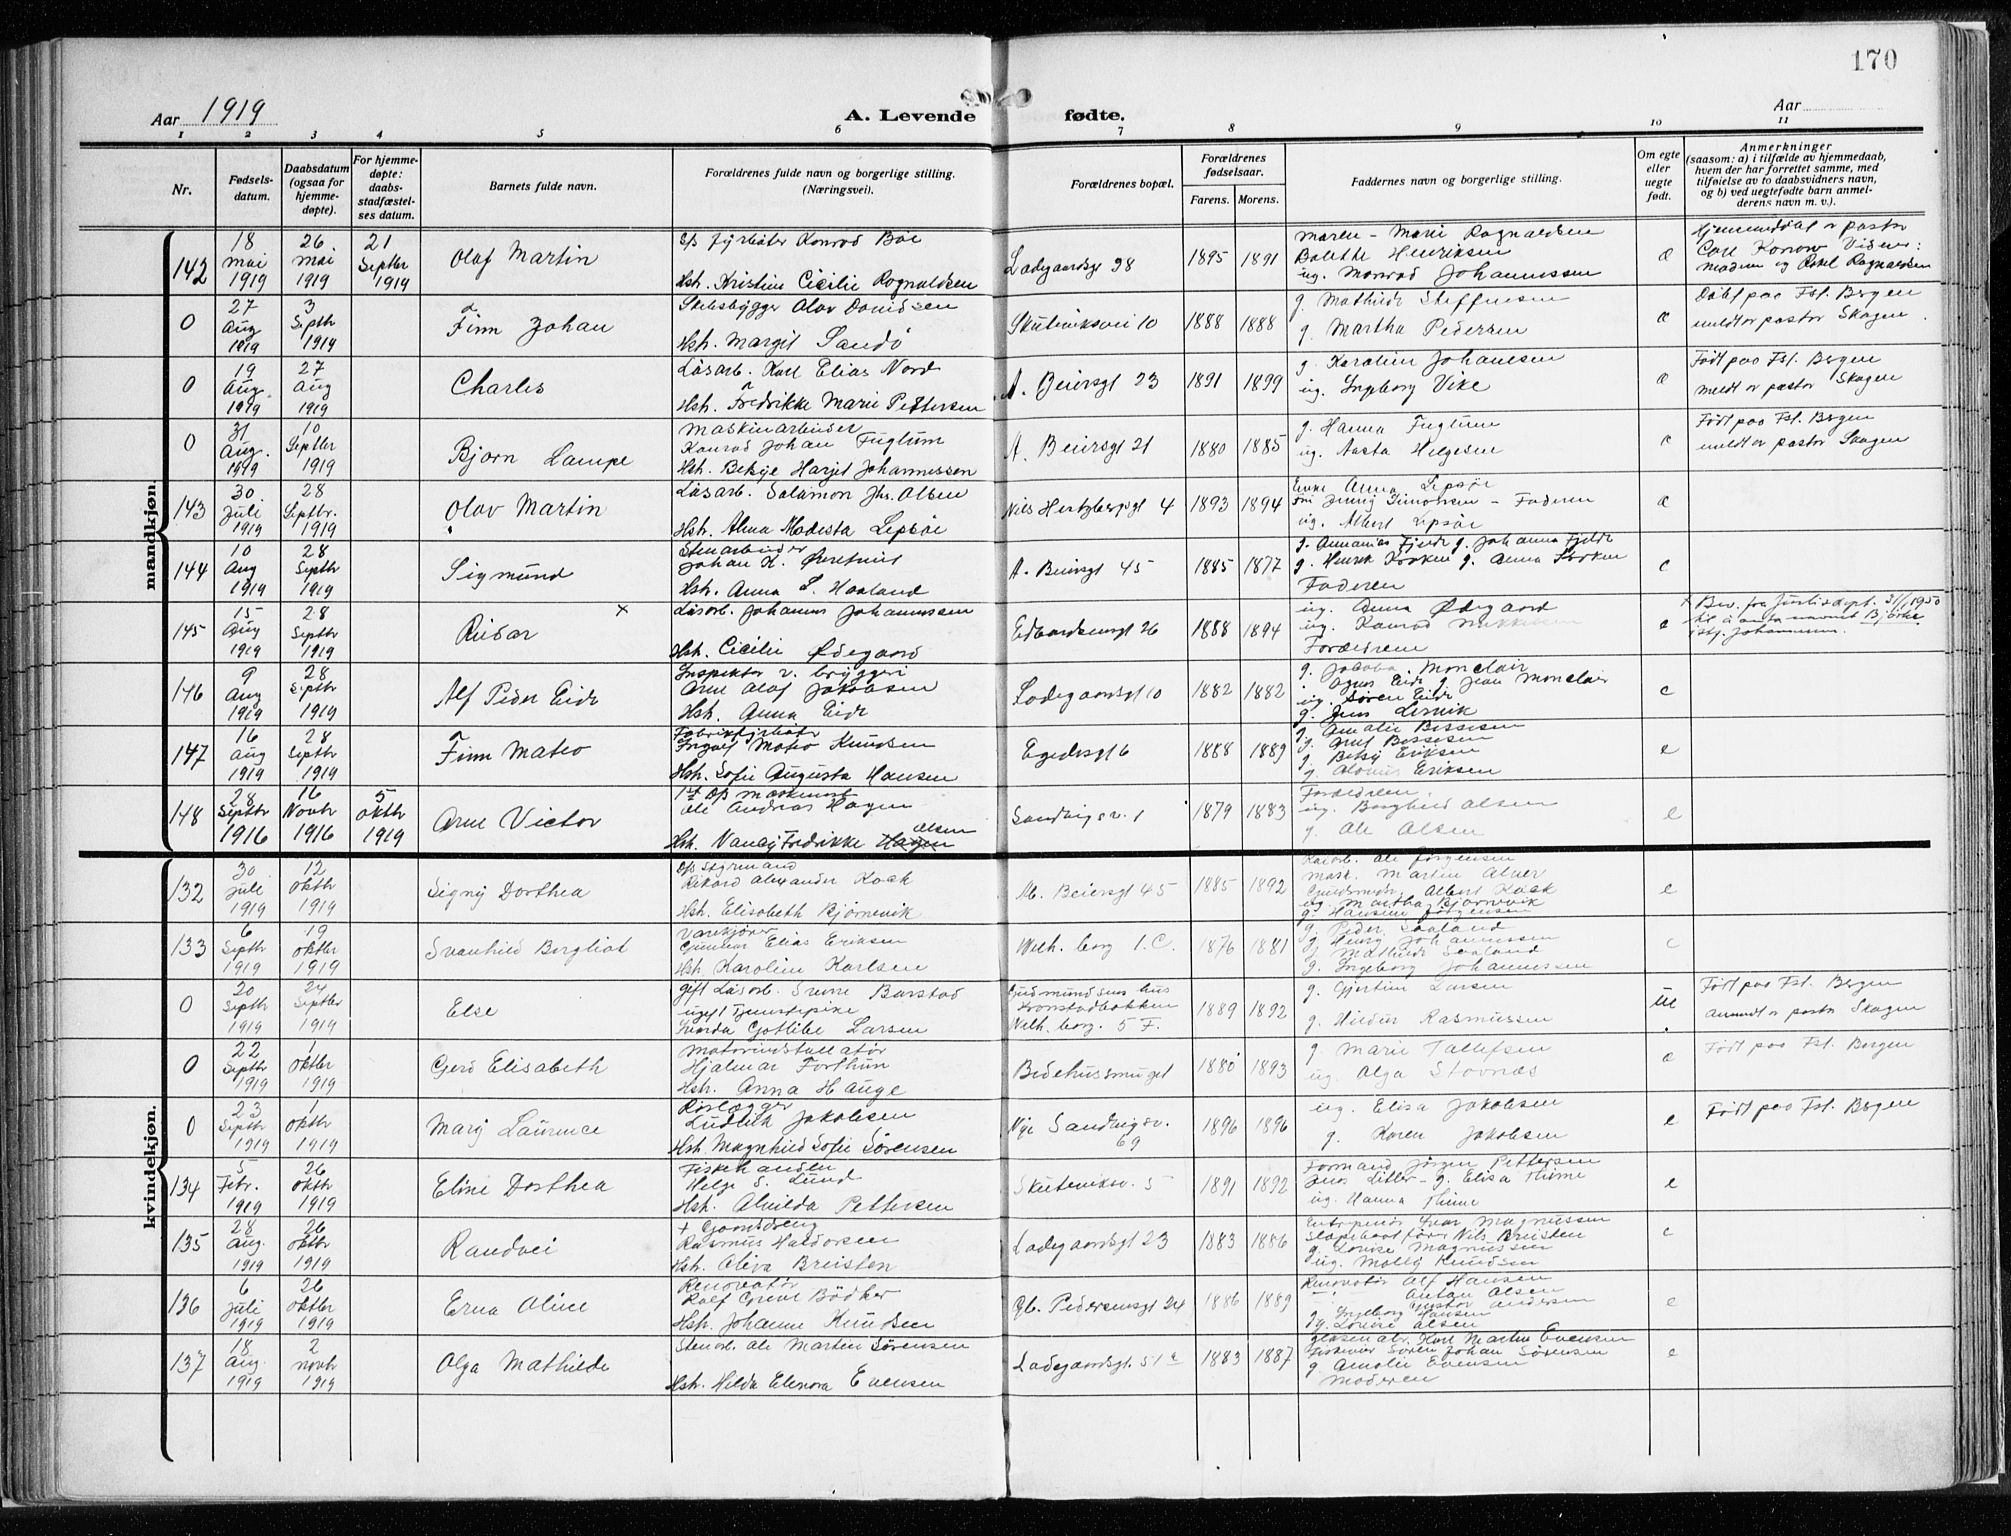 170
Aar 1919
A. Levende fødte.
Aar
1 2 3 4 5 6 7 8 9 10 11
Nr.
Fødsels-
datum.
Daabsdatum
(ogsaa for
hjemme-
døpte).
For hjemme-
døpte:
daabs-
stadfæstel-
ses datum.
Barnets fulde navn.
Forældrenes fulde navn og borgerlige stilling.
(Næringsvei).
Forældrenes bopæl.
Forældrenes
fødselsaar.
Farens. Morens.
Faddernes navn og borgerlige stilling.
Om egte
eller
uegte
født.
Anmerkninger
(saasom: a) i tilfælde av hjemmedaab,
hvem der har forrettet samme, med
tilføielse av to daabsvidners navn,
og b) ved uegtefødte barn anmel-
derens navn m. v.).
mandkjøn.
142
18 mai 1919
26 mai 1919
21 Septbr 1919
Olaf Martin
Fyrbøter Konrad Böe
Hst. Kristine Cicilie Ragnaldsen
Ladegaardsgt 98
1895 1891
Maren-Marie Ragnaldsen
Bolette Henriksen
ug. Monrad Johannessen
Carl Konow
0
27 Aug 1919
3 Septbr 1919
Finn Johan
Olav Davidsen
Hst. Margit Sandö
Skuteviksvei 10
1888 1888
g. Mathilde Steffensen
g. Martha Pedersen
Döbt paa Fst. Bergen
meldt v pastor Skagen
0
19 Aug. 1919
27 Aug 1919
Charles
Läsarb. Karl Elias Nord
Hst. Fredrikke Marie Pettersen
A. Beiersgt 23
1891 1899
g. Karoline Johansen
ug. Ingeborg Vike
Født paa Fst. Bergen
meldt v pastor Skagen
0
31 Aug. 1919
10 Septbr 1919
Bjorn Lampe
Maskinarbeider
Konrad Johan Fuglum
Hst. Johannessen
A. Beiersgt 21
1880 1885
g. Hanna Fuglum
ug. Aasta Helgesen
Født paa Fst. Bergen
meldt v pastor Skagen
143
30 Juli 1919
28 Septbr. 1919
Olav Martin
Läsarb. Salamon Olsen
Hst. Alma Modesta Lepsöe
Nils Hertzbergsgt 4
1893 1894
Enke Anna Lepsöe
Simonsen - Faderen
ug. Albert Lepsöe
144
10 Aug 1919
28 Septbr 1919
Sigmund
Stenarbeider
Johan K.
Hst. Anna S. Haaland
A. Beiersgt 45
1885 1877
g. Ananias Fjelde g. Johanna Fjelde
Faderen
145
15 Aug 1919
28 Septbr 1919
Reidar ×
Läsarb. Johannes Johannessen
Hst. Cicilie Ødegaard
Edvardsensgt 26
1888 1894
ug. Anna Ødegaard
ug. Konrad Mikkelsen
Forældrene
× Bev. fra Justisdept. 1950
til å anta navnet Bjørke
istf. Johannessen.
146
9 Aug 1919
28 Septbr 1919
Alf Peder Eide
Inspektør v. bryggeri
Arne Olaf Jakobsen
Hst. Anna Eide
Ladegaardsgt 10
1882 1882
g. Jacoba Monclair
Agnes Eide g. Jean Monclair
ug. Sören Eide
g. Jens Lervik
147
16 Aug 1919
28 Septbr 1919
Finn Mateo
Fabrikfyrbøter
Ingolf Mateo Knudsen
Hst. Sofie Augusta Hansen
Egedesgt 6
1888 1889
g. Amalie Bessesen
g. Arnt Bessesen
g. Betsy Eriksen
g. Eriksen
148
28 Septbr 1916
16 Novbr 1916
5 oktbr 1919
Arne Victor
Ole Andreas Hagen
Hst. Nancy Fredrikke Hagen Olsen
Sandvigsv. 1
1879 1883
Forældrene.
ug. Borghild Olsen
g. Ole Olsen
kvindekjøn.
132
30 Juli 1919
12 oktbr 1919
Signy Dorthea
Styrmand
Rikard Alexander Kock
Hst. Elisabeth Bjørnevik
M. Beiersgt 45
1885 1892
Ole Jörgensen
Martin Alver
Albert Kock
ug. Martha Bjørnevik
g. Hansine Jörgensen
133
6 Septbr 1919
19 oktbr 1919
Svanhild Bergliot
Varekjører
Gunnar Elias Eriksen
Hst. Karoline Karlsen
Wilh. borg 1. C.
1876 1881
g. Peder Saaland
g. Georg Johannessen
g. Mathilde Saaland
g. Ingeborg Johannessen
0
20 Septbr 1919
24 Septbr 1919
Else
gift Läsarb. Sverre Barstad
ugift Tjenestepike
Svarda Gotlibe Larsen
Gudmundsens hus
Kronstadbakken
Wilh. borg. 5 F.
1889 1892
g. Gjertine Larsen
g. Hildur Rasmussen
ue
Født paa Fst. Bergen
anmeldt v pastor Skagen
0
22 Septbr 1919
1 oktbr 1919
Gerd Elisabeth
Motorinstallatør
Hjalmar Forthun
Hst. Anna Hauge
Bedehussmuget
1880 1893
g. Marie Tollefsen
ug. Olga Stovnäs
Født paa Fst. Bergen
0
23 Septbr 1919
1 oktbr 1919
Mary Laurence
Rørlægger
Ludvik Jakobsen
Hst. Magnhild Sofie Sørensen
Nye Sandvigsv. 69
1896 1896
ug. Elisa Jakobsen
g. Karen Jakobsen
e
Født paa Fst. Bergen
134
5 Febr. 1919
26 oktbr 1919
Eline Dorthea
Fiskehandler
Helge S. Lund
Hst. Alvilda Pettersen
Skuteviksv. 5
1891 1892
Formand Jörgen Pettersen
g. Elisa Thime
ug. Hanna Thime
e
135
28 Aug. 1919
26 oktbr 1919
Randvei
+ Gaardsdreng
Rasmus Haldorsen
Hst. Oliva Breisten
Ladegaardsgt 23
1883 1886
Entreprenör Ivar Magnussen
Slæpebaatfører Nils Breisten
g. Lovise Magnussen
ug. Molly Knudsen
136
6 Juli 1919
26 oktbr 1919
Erna Oline
Renovatør
Rolf Bödker
Hst. Johanne Knudsen
Gb. Pedersensgt 24
1886 1889
Renovatør Alf Hansen
Anton Olsen
Gustav Andersen
g. Ingeborg Hansen
g. Lovise Olsen
e
137
18 Aug. 1919
2 novbr 1919
Olga Mathilde
Stenarb. Ole Martin Sörensen
Hst. Hilda Elenora Evensen
Ladegaardsgt. 51 a
1883 1887
Karl Martin Evensen
Sören Johan Sörensen
g. Amalie Evensen
Moderen
e